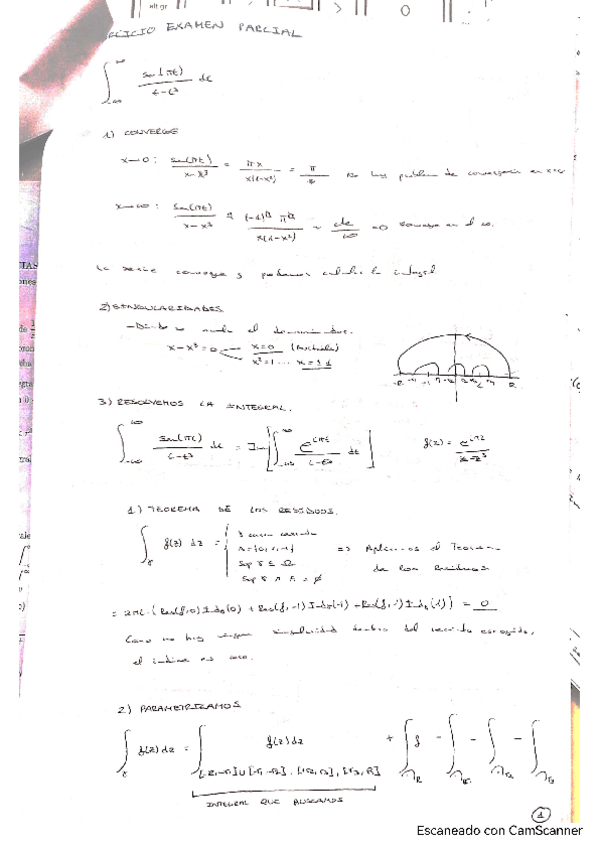 EXAMEN PARCIAL
∫_{-∞}^{∞} sen(πt) / t-t³ dt
1) CONVERGE
x→0 : sen(πt) / x-x³ = πx / x(1-x²) = π No hay problema de convergencia en
x→∞ : sen(πt) / x-x³ / x(1-x²) ~ cte / ∞ →0 converge en el ∞.
converge y podemos calcular la integral
2) SINGULARIDADES
-Donde se anula el denominador.
x-x³=0 x=0 (evitable)
x²=1 ... x=±1
3) RESOLVEMOS LA INTEGRAL.
∫_{-∞}^{∞} sen(πt) / t-t³ dt = Im[∫_{-∞}^{∞} e^{iπt} / t-t³ dt] f(z)= e^{iπz} / z-z³
1) TEOREMA DE LOS RESIDUOS.
∫_γ f(z) dz = { γ curva cerrada
A={0,1,-1}
Sop γ ⊆ Ω => Aplicamos el Teorema
Sop γ ∩ A = ∅ de los Residuos
= 2πi·(Res(f,0)Ind_γ(0) + Res(f,-1)Ind_γ(-1) + Res(f,1)Ind_γ(1)) = 0
Como no hay ninguna singularidad dentro del recinto escogido,
el índice es cero.
2) PARAMETRIZAMOS
∫_γ f(z)dz = ∫ f(z)dz + ∫ f - ∫ - ∫ - ∫
INTEGRAL QUE BUSCAMOS
1
Escaneado con CamScanner